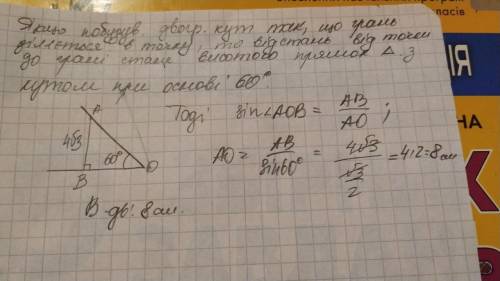 Якщо побудув. двогр. кут так, що грань
ділиться в точку, то відстань від точки
до грані стане висотою прямок. Δ. з
кутом при основі 60°.
Тоді sin∠AOB = AB/AO ;
A
4√3
60°
B
O
AO = AB/sin60° = 4√3/(√3/2) = 4·2 = 8 см
В-дь: 8 см.